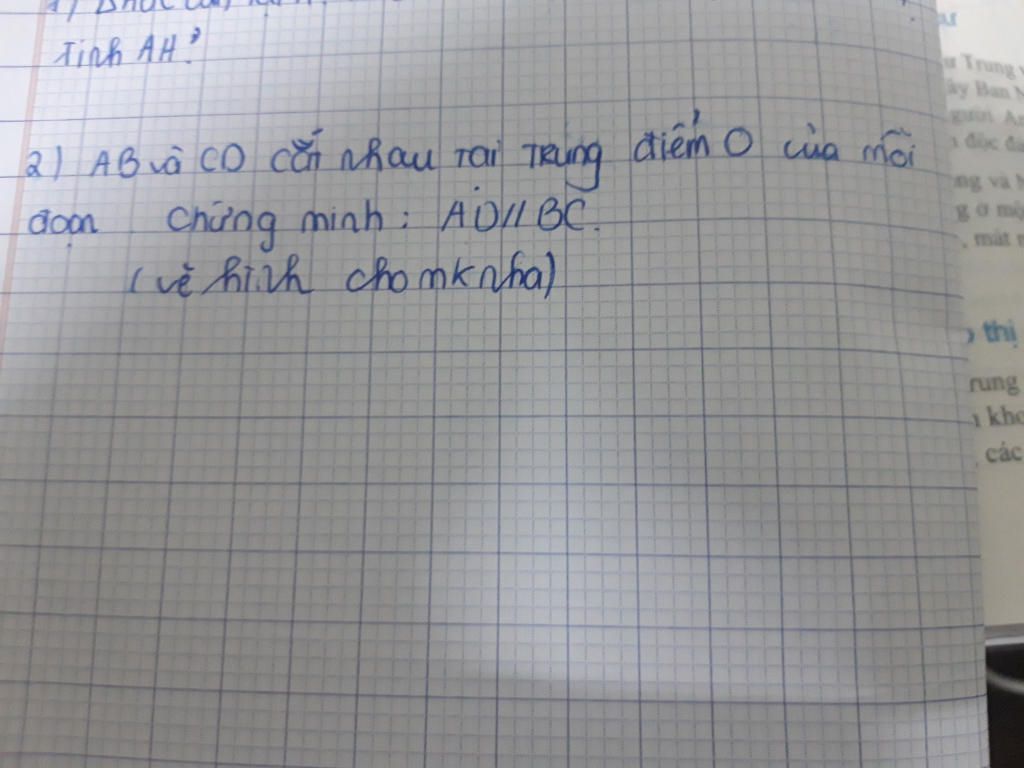 Tính AH?
2) AB và CD cắt nhau tại trung điểm O của mỗi
đoạn chứng minh: AD//BC.
(vẽ hình cho mk nha)
ư
Trung
ây Ban
người
độc
ng và
g ở
, mát
thị
rung
các